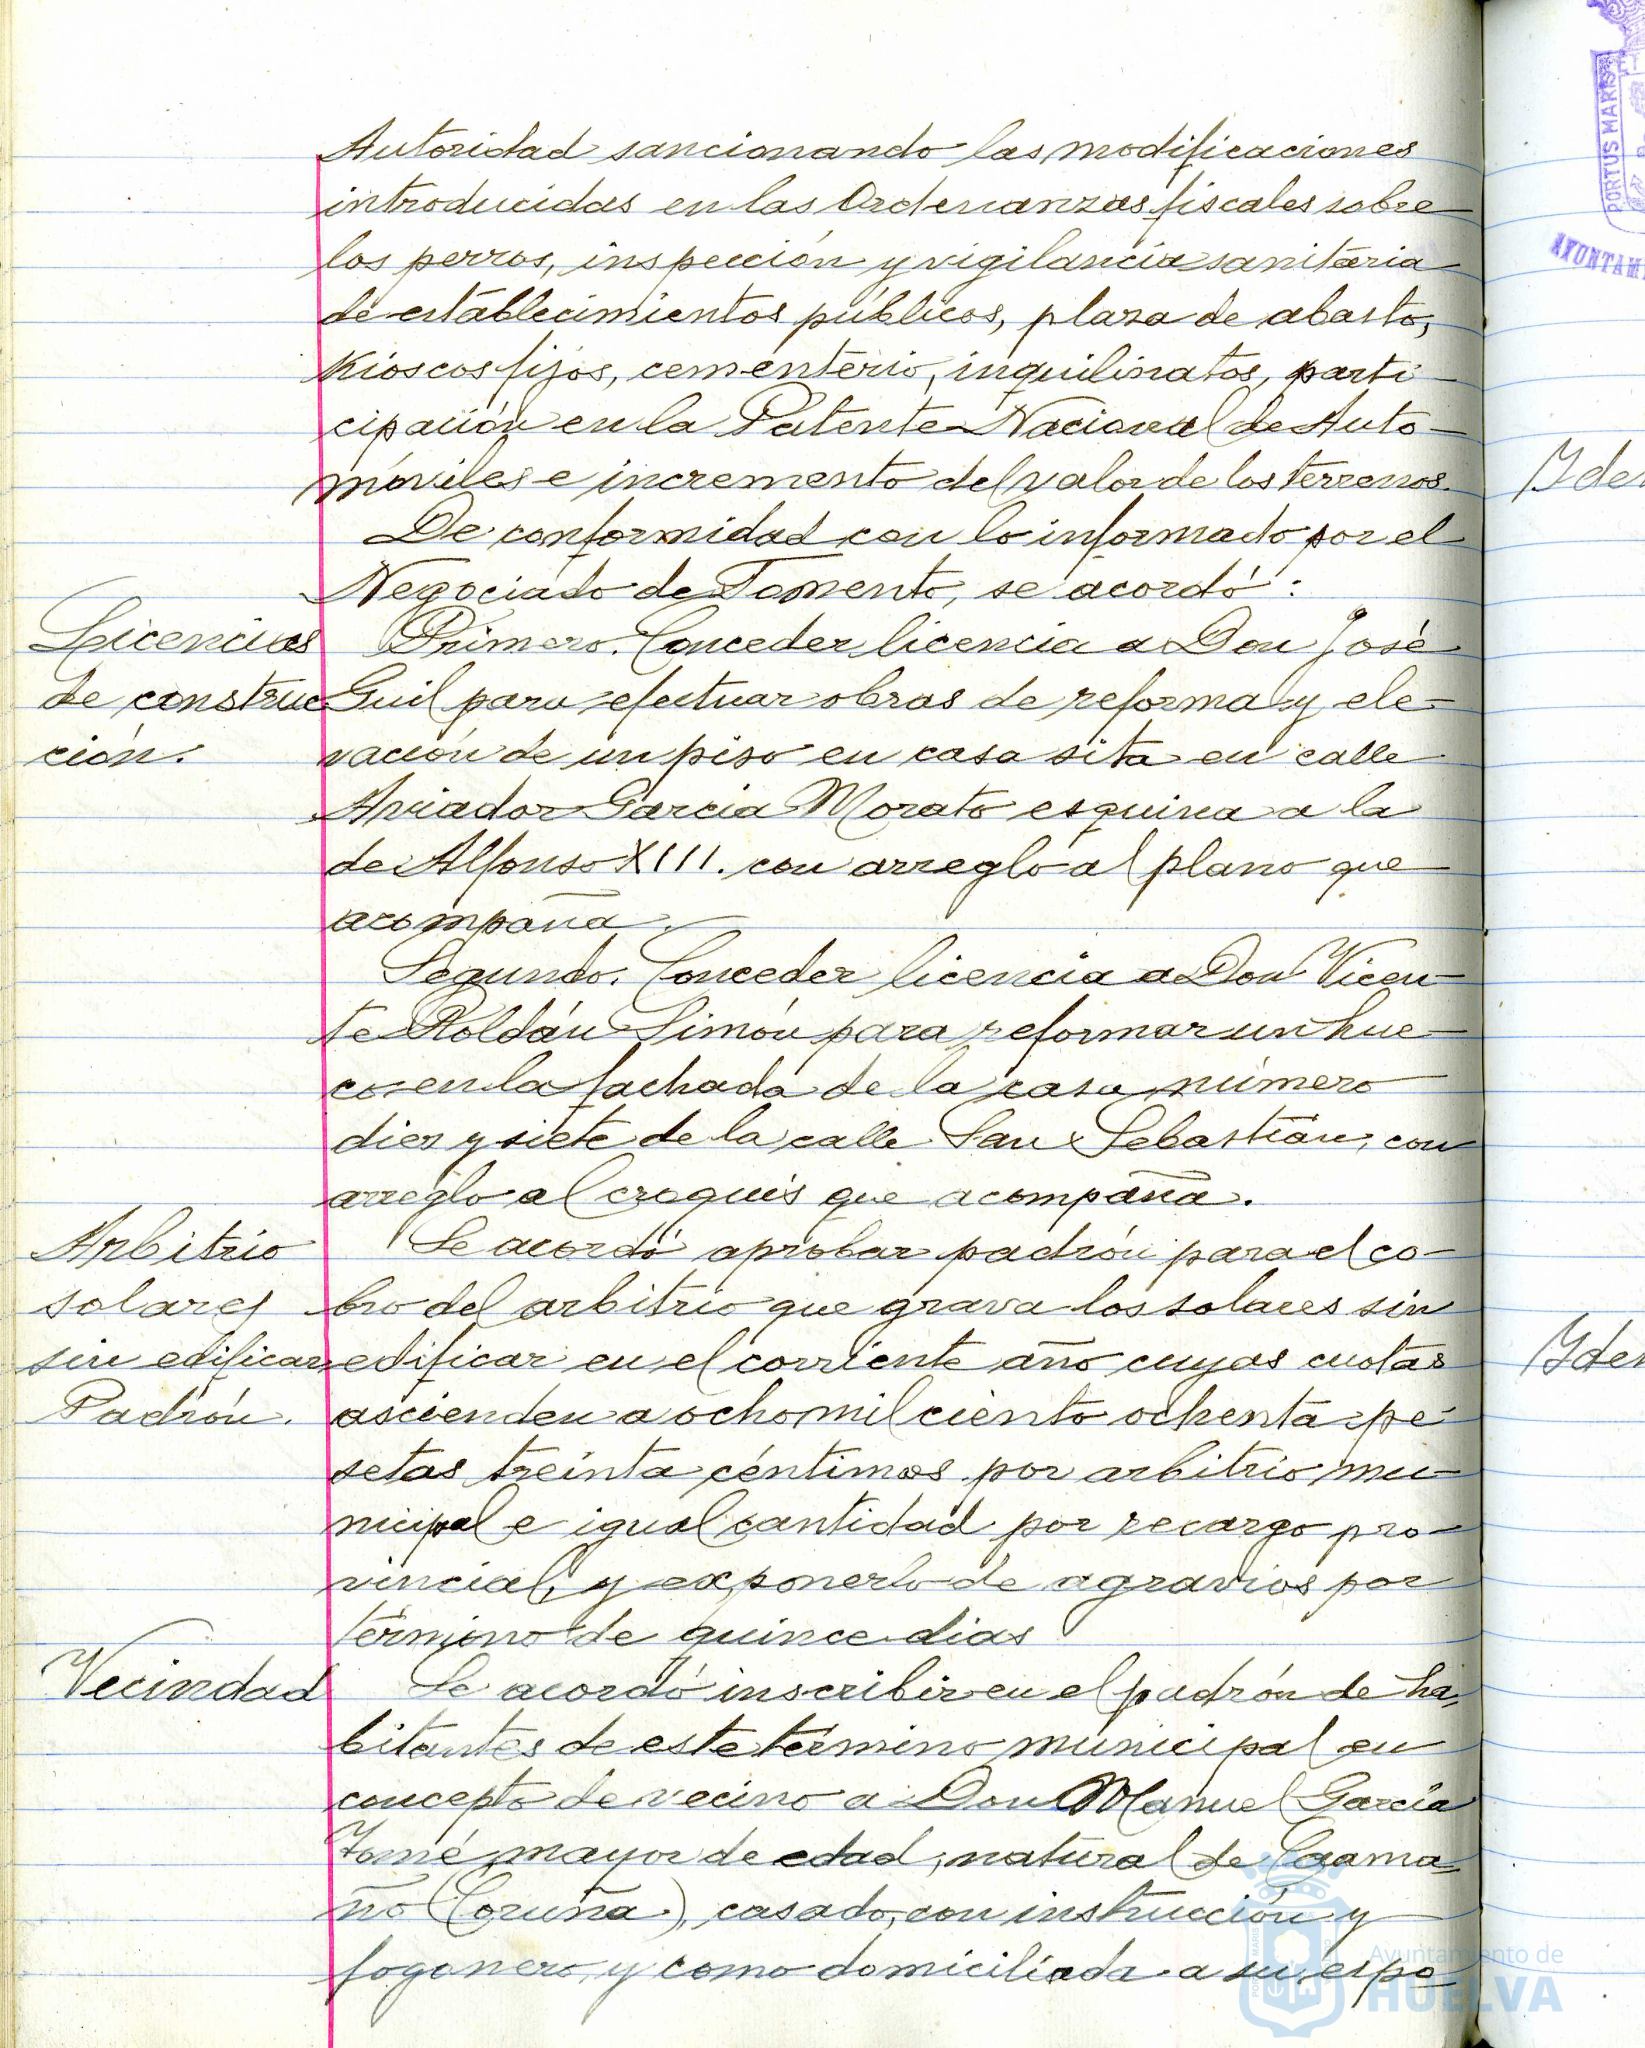 Autoridad sancionando las modificaciones
introducidas en las Ordenanzas fiscales sobre
los perros, inspección y vigilancia sanitaria
de establecimientos públicos, plaza de abasto,
Kioscos fijos, cementerio, inquilinatos, parti-
cipación en la Patente Nacional de Auto-
móviles e incremento del valor de los terrenos.
De conformidad con lo informado por el
Negociado de Fomento, se acordó:
Licencias
de construc
ción.
Primero. Conceder licencia a Don José
Guil para efectuar obras de reforma y ele-
vación de un piso en casa sita en calle
Aviador García Morato esquina a la
de Alfonso XIII. con arreglo al plano que
acompaña.
Segundo. Conceder licencia a Don Vicen-
te Roldán Simón para reformar un hue-
co en la fachada de la casa número
diez y siete de la calle San Sebastián, con
arreglo al croquis que acompaña.
Arbitrio
solares
sin edificar
Padrón.
Se acordó aprobar padrón para el co-
bro del arbitrio que grava los solares sin
edificar en el corriente año cuyas cuotas
ascienden a ocho mil ciento ochenta pe-
setas treinta céntimos por arbitrio mu-
nicipal e igual cantidad por recargo pro-
vincial, y exponerlo de agravios por
término de quince dias
Vecindad
Se acordó inscribir en el padrón de ha-
bitantes de este término municipal en
concepto de vecino a Don Manuel García
Tomé, mayor de edad, natural de Caama-
ño (Coruña), casado, con instrucción y
fogonero, y como domiciliada a su espo
PORTUS MARIS
Ayuntamiento de
HUELVA